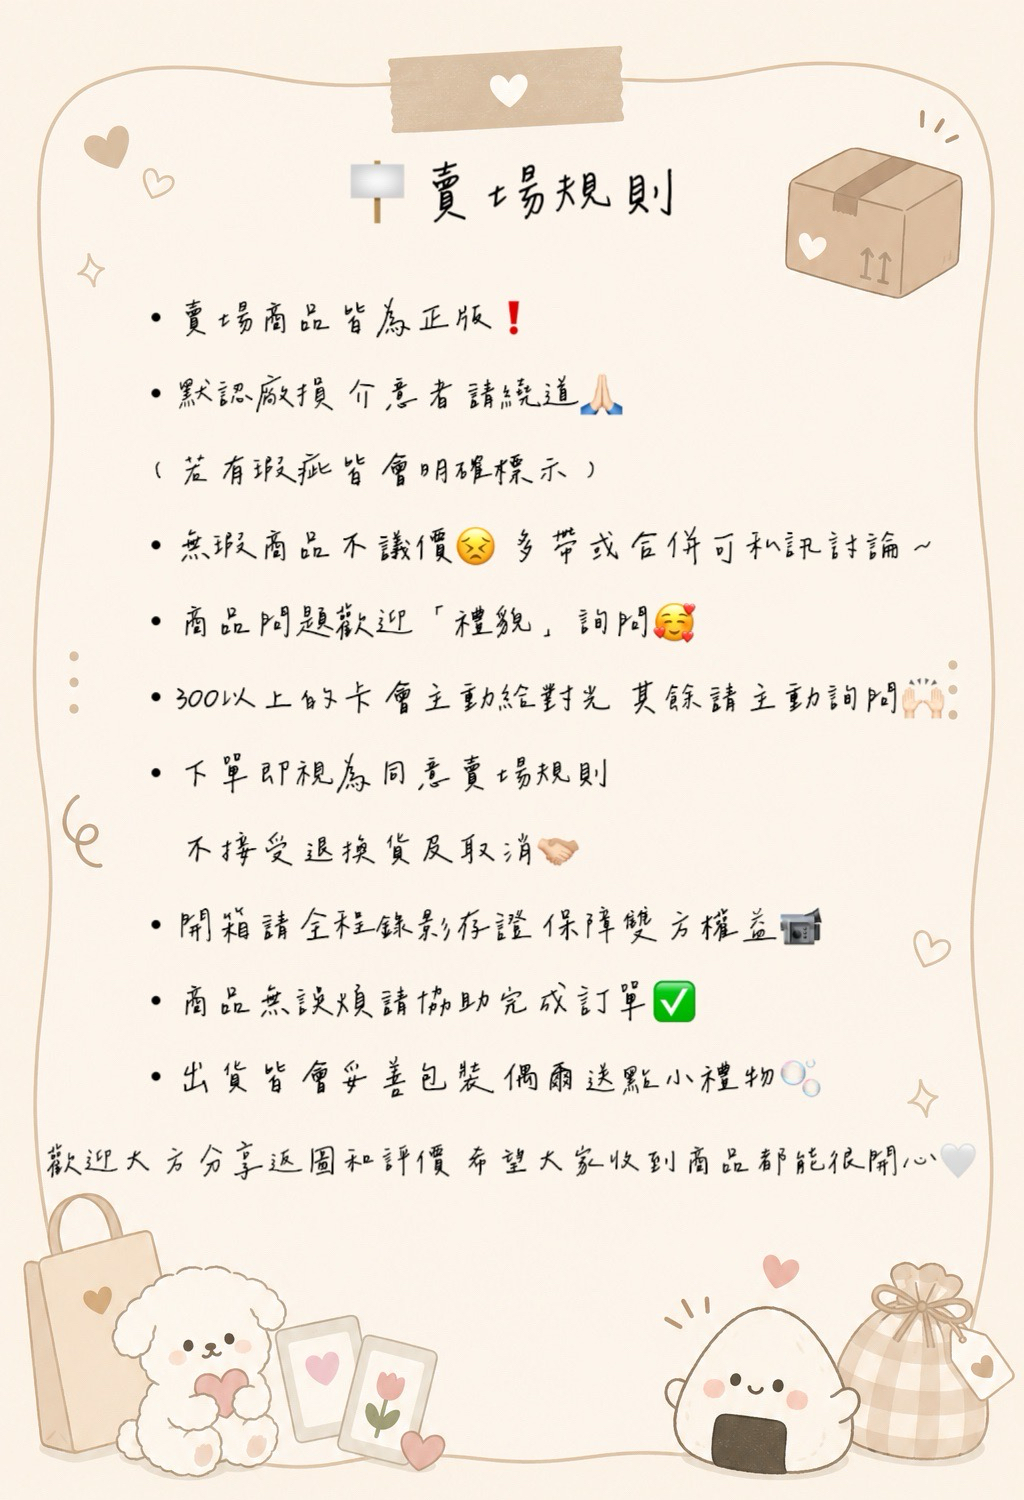 🪧 賣場規則
• 賣場商品皆為正版❗
• 默認廠損 介意者 請繞道🙏🏻
（若有瑕疵皆會明確標示）
• 無瑕商品不議價😣 多帶或合併可私訊討論～
• 商品問題歡迎「禮貌」詢問🥰
• 300以上的卡會主動給對光 其餘請主動詢問🙌🏻
• 下單即視為同意賣場規則
不接受退換貨及取消🤝🏻
• 開箱請全程錄影存證 保障雙方權益📹
• 商品無誤煩請協助完成訂單✅
• 出貨皆會妥善包裝 偶爾送點小禮物🫧
歡迎大方分享返圖和評價 希望大家收到商品都能很開心🤍